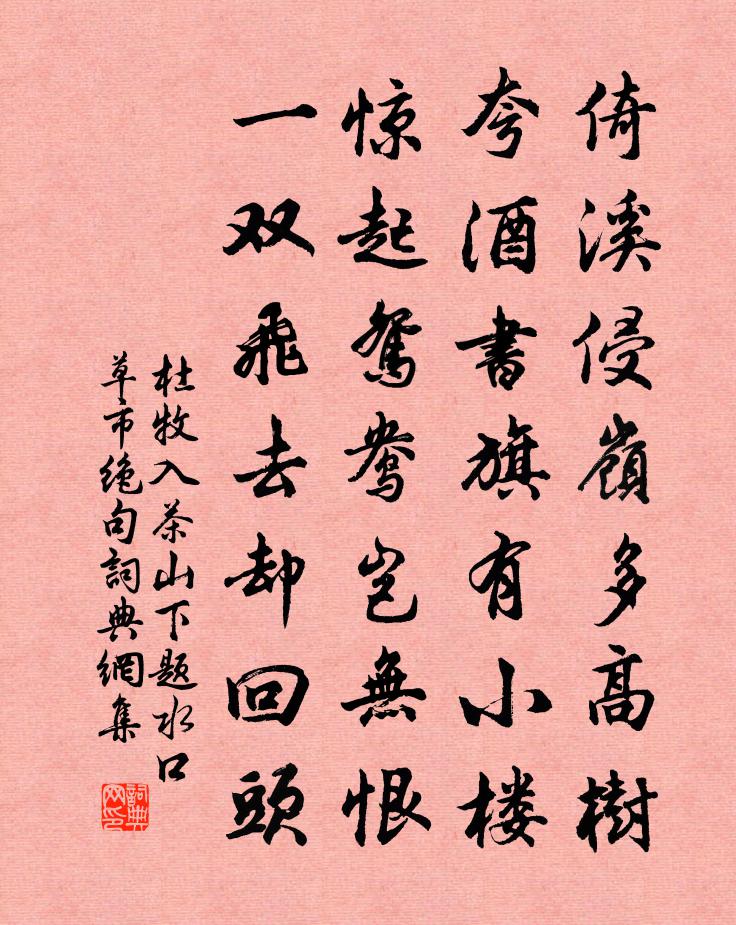 倚溪侵嶺多高樹
夸酒書旗有小楼
惊起鴛鴦岂無恨
一双飛去却回頭
杜牧入茶山下题水口
草市绝句詞典網集
詞典网印